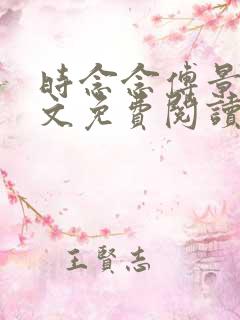 時念念傅景
文免費閱讀
王賢志